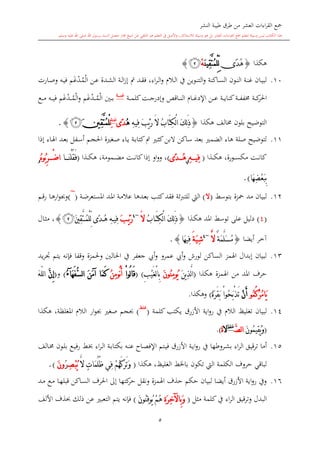 جمع القراءات العشر من طرق طيبة النشر
هكذا ﴿ هُدٗى لِّلۡمُتَّقِينَ ﴾
١٠. لبيان غنة النون الساكنة والتنوين في اللام والراء، فقد تم إزالة الشدة عن الحرف المُدْغَم فيه وصارت
الحركة مخففة كناية عن الإدغام الناقص وإدرجت كلمة بين المُدْغَم والمُدْغَم فيه مع
التوضيح بلون مخالف هكذا ﴿ ذَٰلِكَ ٱلۡكِتَٰبُ لَا رَيۡبَۛ فِيهِۛ هُدٗى لِّلۡمُتَّقِينَ ﴾ .
١١. لتبيح صلة هاء الضمير بعد ساكن لابن كثير تم كتابة ياء صغيرة الحجم أسفل بعد الهاء إذا
كانت مكسورة، هكذا ( فِيهِ هُدٗى )، وواو إذا كانت مضمومة، هكذا (
بِبَعۡضِهَا).
١٢. لبيان مد حمزة بتوسط (لا) التي للتبرئة فقد كتب بعدها علامة المد المستعرضة ( ) وبجوارها رقم
(٤) دليل على توسط المد هكذا ﴿ لَا رَيۡبَۛ فِيهِۛ هُدٗى لِّلۡمُتَّقِينَ ﴾ ، مثال
آخر أيضا ﴿ مُسَلَّمَةٞ لَّا شِيَةَ فِيهَا ﴾ .
١٣. لبيان إبدال الهمز الساكن لورش وأبي عمرو وأبي جعفر في الحالين ولحمزة وقفا فإنه يتم تجريد
حرف المد من الهمزة هكذا (الَّذِينَ يُومِنُونَ بِٱلۡغَيۡبِ)، (قَالُوٓاْ أَنُومِنُ كَمَآ ءَامَنَ ٱلسُّفَهَآءُ) (إِنَّ ٱللَّهَ
يَامُرُكُمۡ أَن تَذۡبَحُواْ بَقَرَةٗ) وهكذا.
١٤. لبيان تغليظ اللام في رواية الأزرق يكتب كلمة ( ) بحجم صغير بجوار اللام المغلظة، هكذا
(وَيُقِيمُونَ ٱلصَّلَوٰةَ).
١٥. أما ترقيق الراء بشروطها في رواية الأزرق فيتم الإفصاح عنه بكتابة الراء بخط رفيع بلون مخالف
لباقي حروف الكلمة التي تكون بالخط الغليظ، هكذا ( وَتَرَكَهُمۡ فِي ظُلُمَٰتٖ لَّا يُبۡصِرُونَ ).
١٦. وفي رواية الأزرق أيضا لبيان حكم حذف الهمزة ونقل حركتها إلى الحرف الساكن قبلها مع مد
البدل وترقيق الراء في كلمة مثل ( وَبِٱلۡأٓخِرَةِ هُمۡ يُوقِنُونَ ) فإنه يتم التعبير عن ذلك بحذف الألف
٥